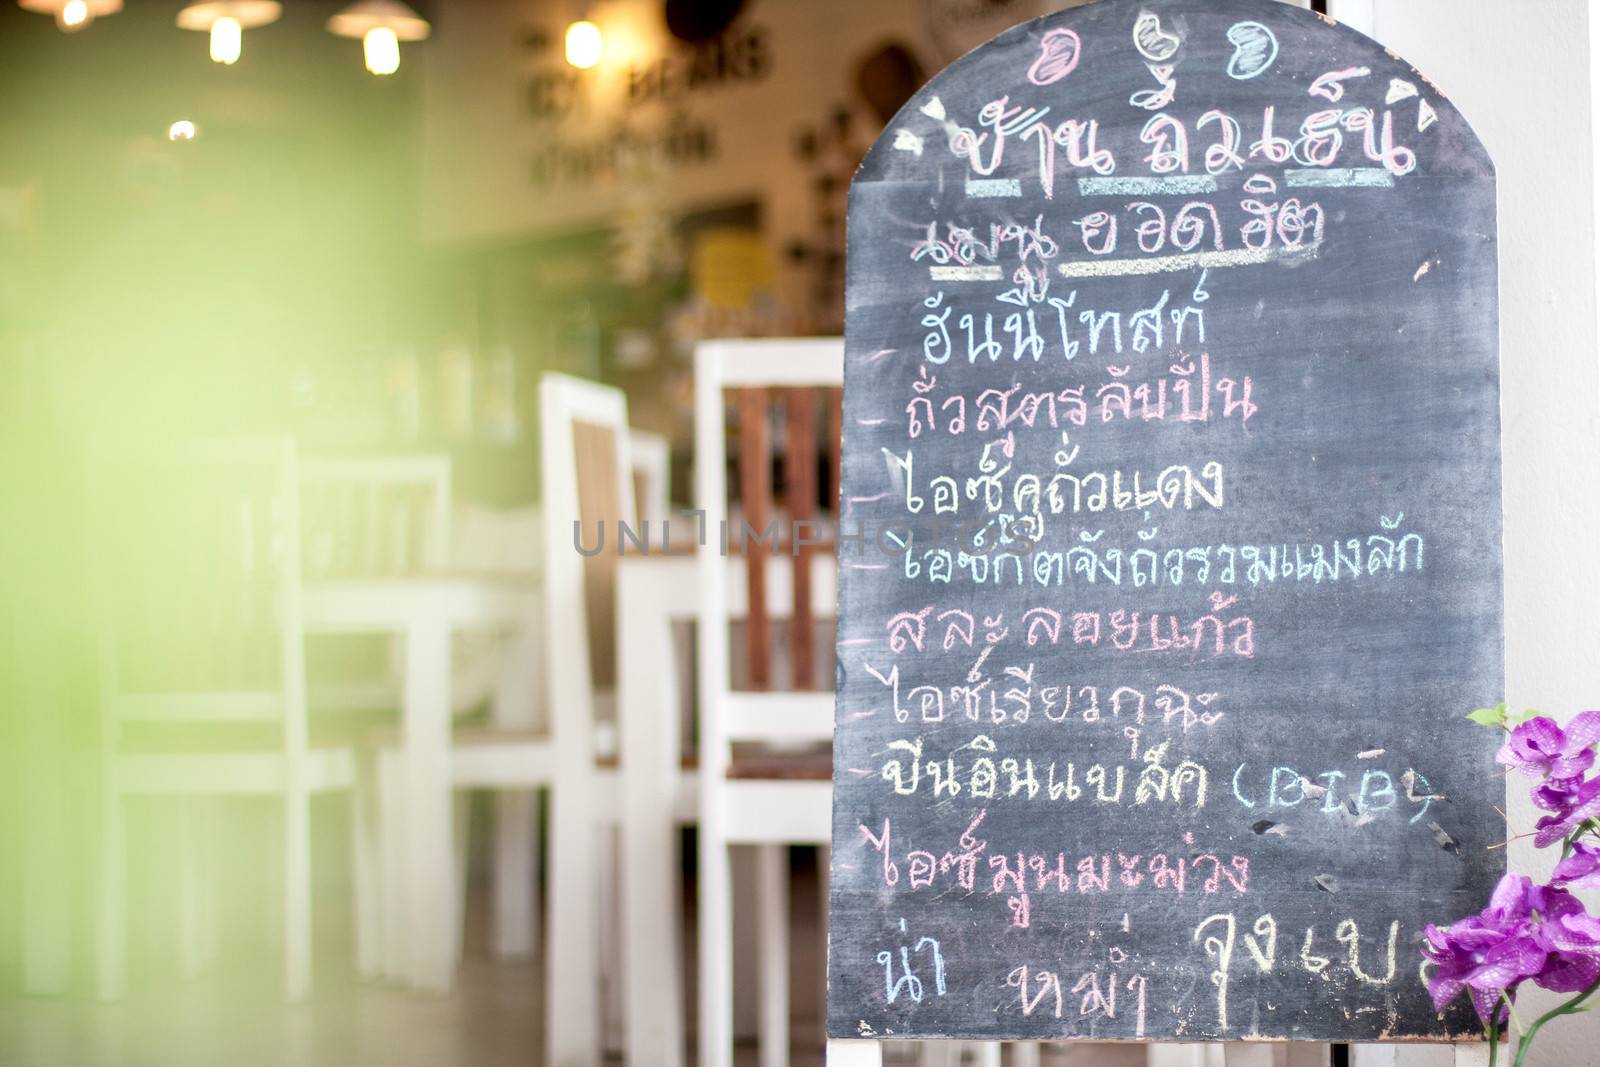 บ้านถั่วเย็น
เมนูยอดฮิต
ฮันนี่โทสท์
- ถั่วสูตรลับปีน
- ไอซ์คูถั่วแดง
- ไอซ์กิตจังถั่วรวมแมงลัก
- สละลอยแก้ว
- ไอซ์เรียวกุฉะ
- ปีนอินแบล็ค (BIB)
- ไอซ์มูนมะม่วง
น่า หม่ำ จุงเบย
BEANS
UNLIMPHOTOS